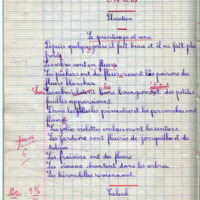 Elocution
Le printemps est venu
Depuis quelques jours il fait beau et il ne fait plus
froid
Les arbres sont en fleurs
Les pêchers ont des fleurs roses et les poiriers des
fleurs blanches
Les arbres bourgeonnent des petites
feuilles apparaissent
Dans les les primevères et les pervenches sont
fleuries
Les jolies violettes embaument les sentiers
Les jardins sont fleuris de jonquilles et de
tulipes
Les fraisiers ont des fleurs
Les oiseaux chantent dans les arbres
Les hirondelles reviennent
Calcul